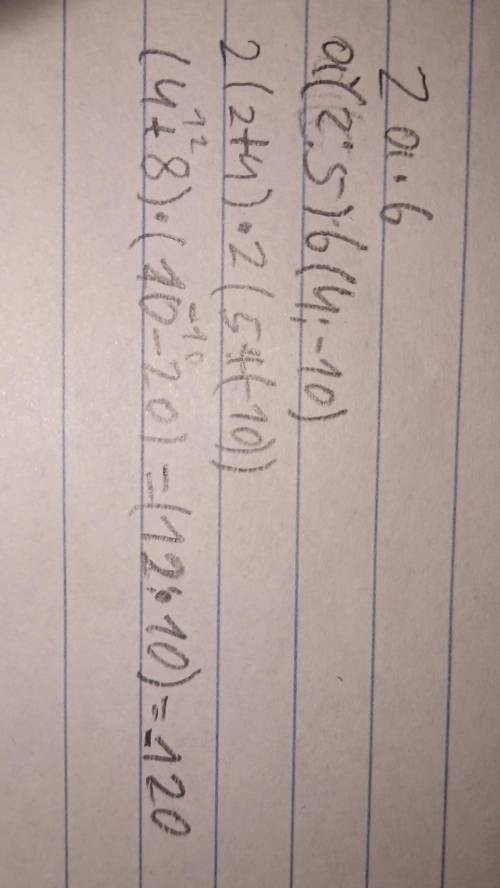 2 a · b
a(2;5) b(4;-10)
2(2+4) · 2(5+(-10))
(4+8) · (10-20) = (12·10) = -120
12 -10